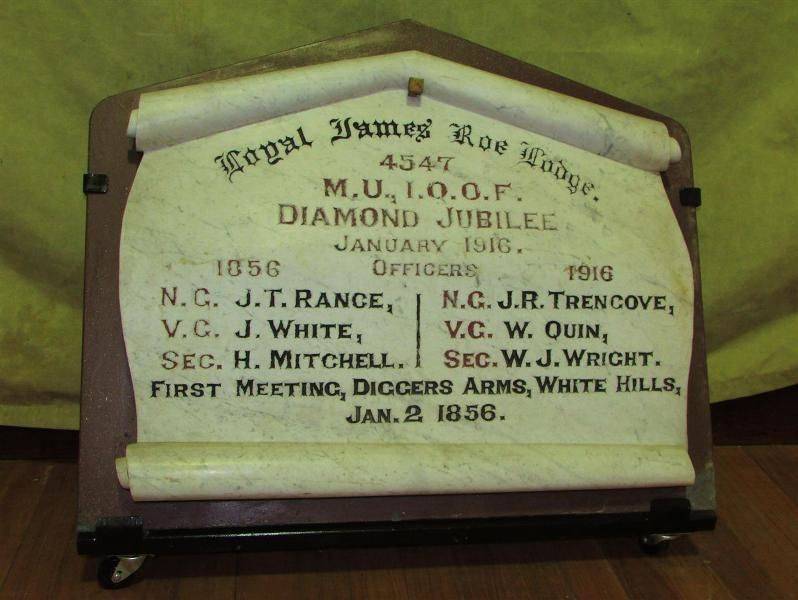 Loyal James Roe Lodge.
4547
M.U., I.O.O.F.
DIAMOND JUBILEE
JANUARY 1916.
1856 OFFICERS 1916
N.G. J.T. RANGE, N.G. J.R. TRENGOVE,
V.G. J. WHITE, V.G. W. QUIN,
SEC. H. MITCHELL. SEC. W. J. WRIGHT.
FIRST MEETING, DIGGERS ARMS, WHITE HILLS,
JAN. 2 1856.